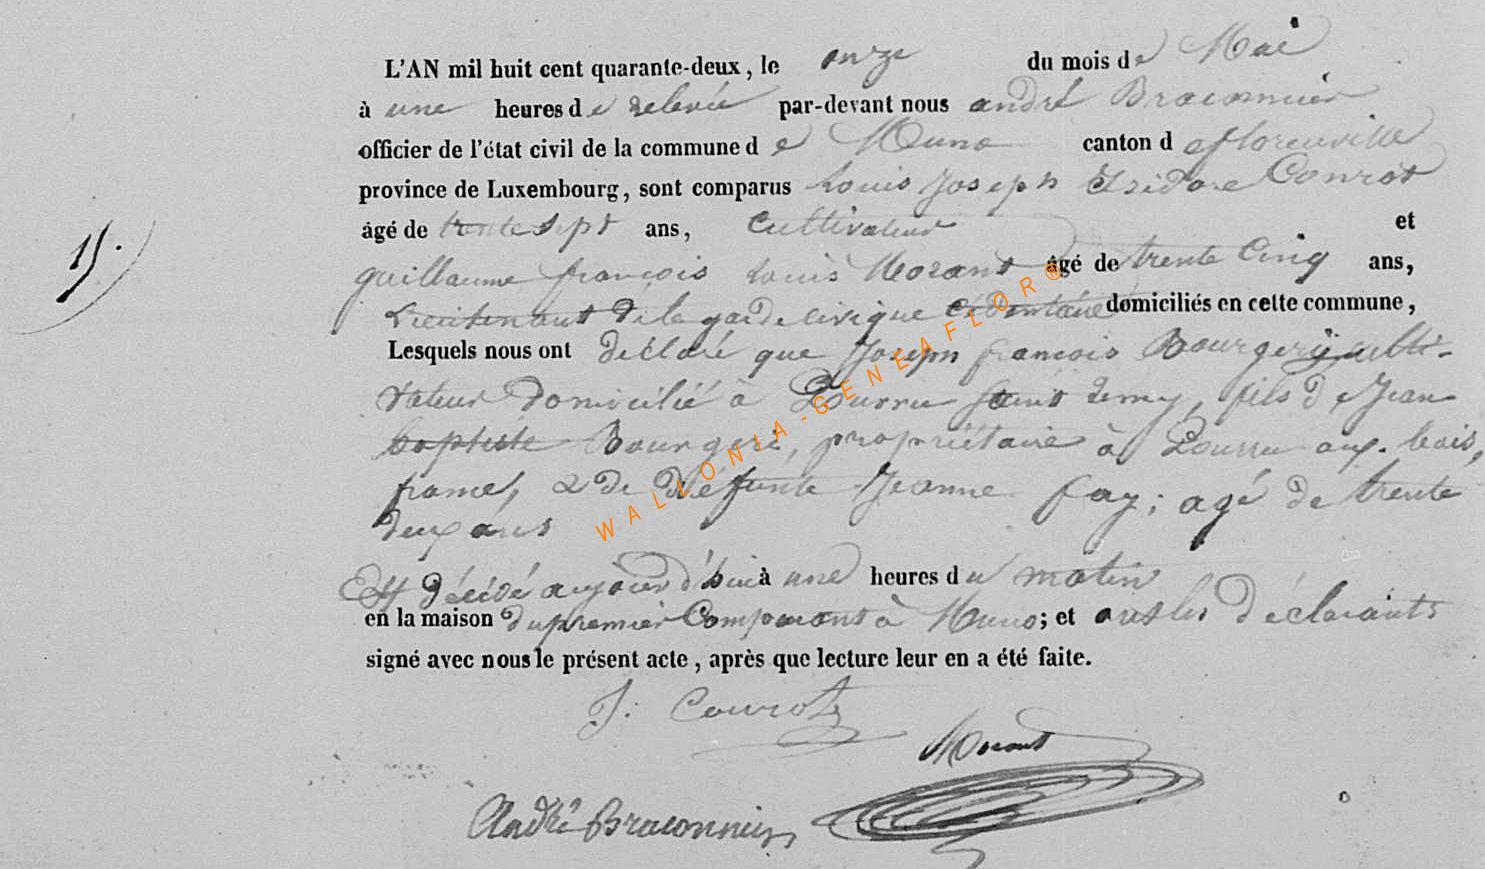 L'AN mil huit cent quarante-deux, le onze du mois de Mai
à une heures de relevée par-devant nous andré Braconnier
officier de l'état civil de la commune de Muno canton de florenville
province de Luxembourg, sont comparus Louis Joseph Isidore Conrot
âgé de trente sept ans, Cultivateur et
15.
guillaume françois Louis Morant âgé de trente Cinq ans,
Lieutenant de la garde civique domiciliés en cette commune,
Lesquels nous ont déclaré que Joseph françois Bourgery culti-
vateur domicilié à Pourru Saint Remy, fils de Jean
baptiste Bourgeri, propriétaire à Pourru aux bois,
france, & de défunte Jeanne fay; agé de trente
deux ans
Est décédé aujourd'hui à une heures du matin
en la maison du premier Comparant à Muno; et ont les déclarants
signé avec nous le présent acte, après que lecture leur en a été faite.
J: Conrot
Morant
André Braconnier
WALLONIA-GENEAFLOR®